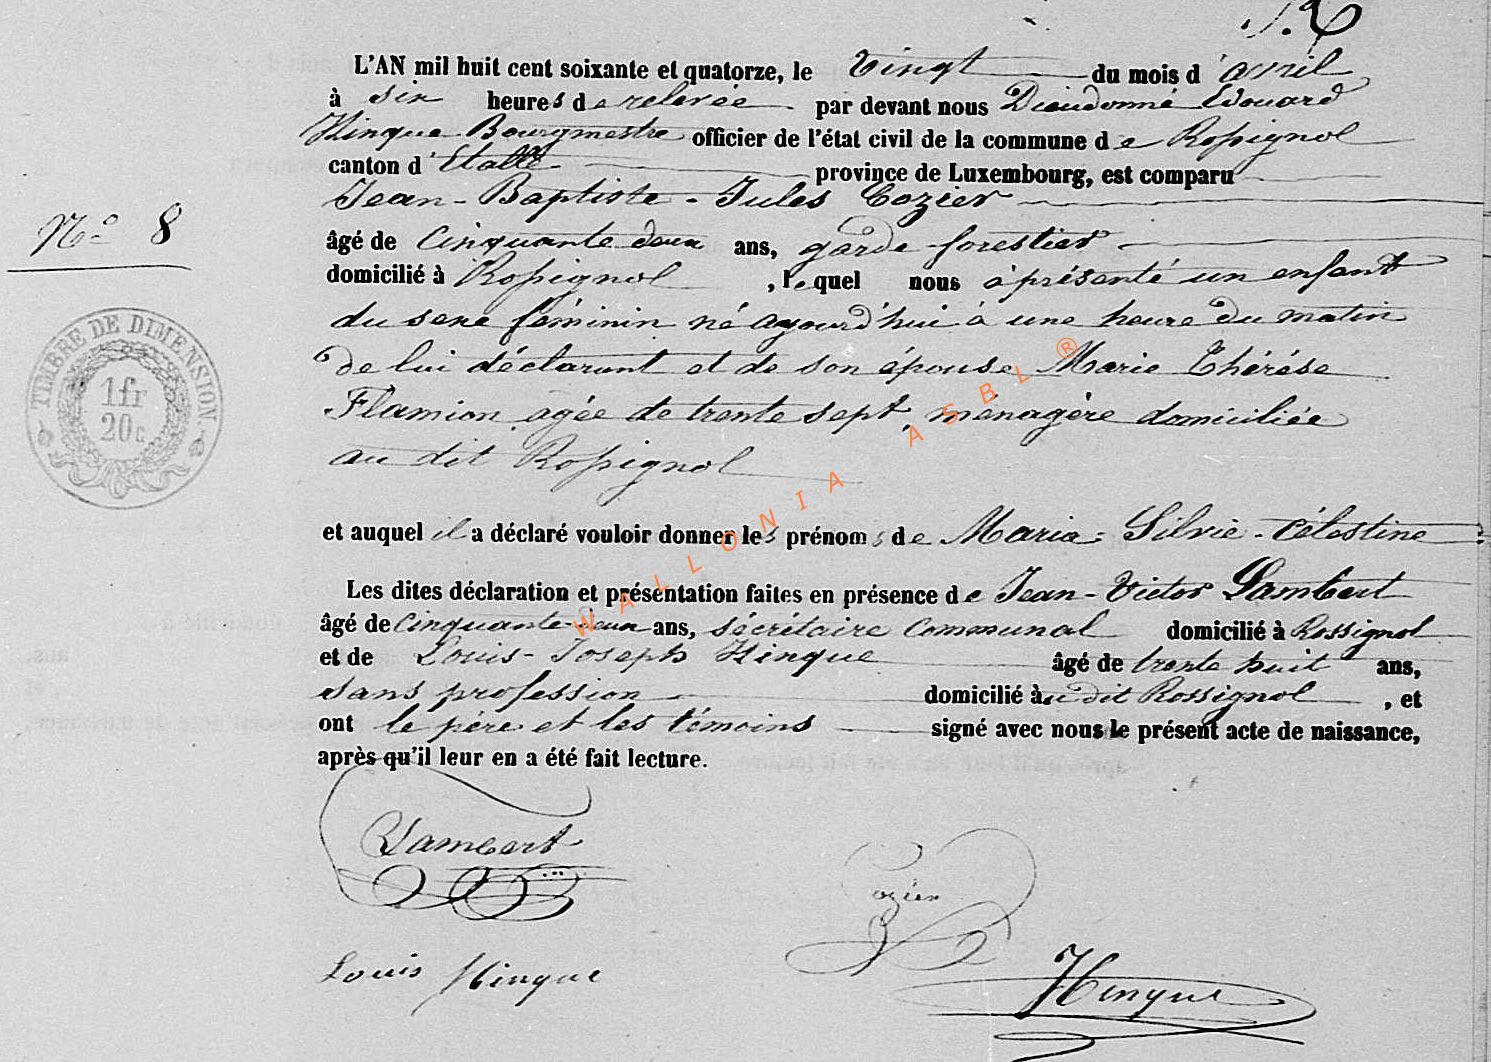 L'AN mil huit cent soixante et quatorze, le vingt du mois d'avril
à six heures de relevée par devant nous Dieudonné Edouard
Hinque Bourgmestre officier de l'état civil de la commune de Rossignol
canton d'Etalle province de Luxembourg, est comparu
Jean-Baptiste-Jules Cozier
N° 8
âgé de cinquante deux ans, garde forestier
domicilié à Rossignol, lequel nous a présenté un enfant
du sexe féminin né aujourd'hui à une heure du matin
de lui déclarant et de son épouse Marie Thérèse
Flamion agée de trente sept, ménagère domiciliée
au dit Rossignol
TIMBRE DE DIMENSION
1fr
20c
et auquel il a déclaré vouloir donner les prénoms de Maria-Silvie-Célestine
Les dites déclaration et présentation faites en présence de Jean-Victor Lambert
âgé de cinquante-deux ans, sécrétaire communal domicilié à Rossignol
et de Louis-Joseph Hinque âgé de trente huit ans,
sans profession domicilié au dit Rossignol, et
ont le père et les témoins signé avec nous le présent acte de naissance,
après qu'il leur en a été fait lecture.
Lambert
Cozier
Louis Hinque
Hinque
WALLONIA ASBL ®